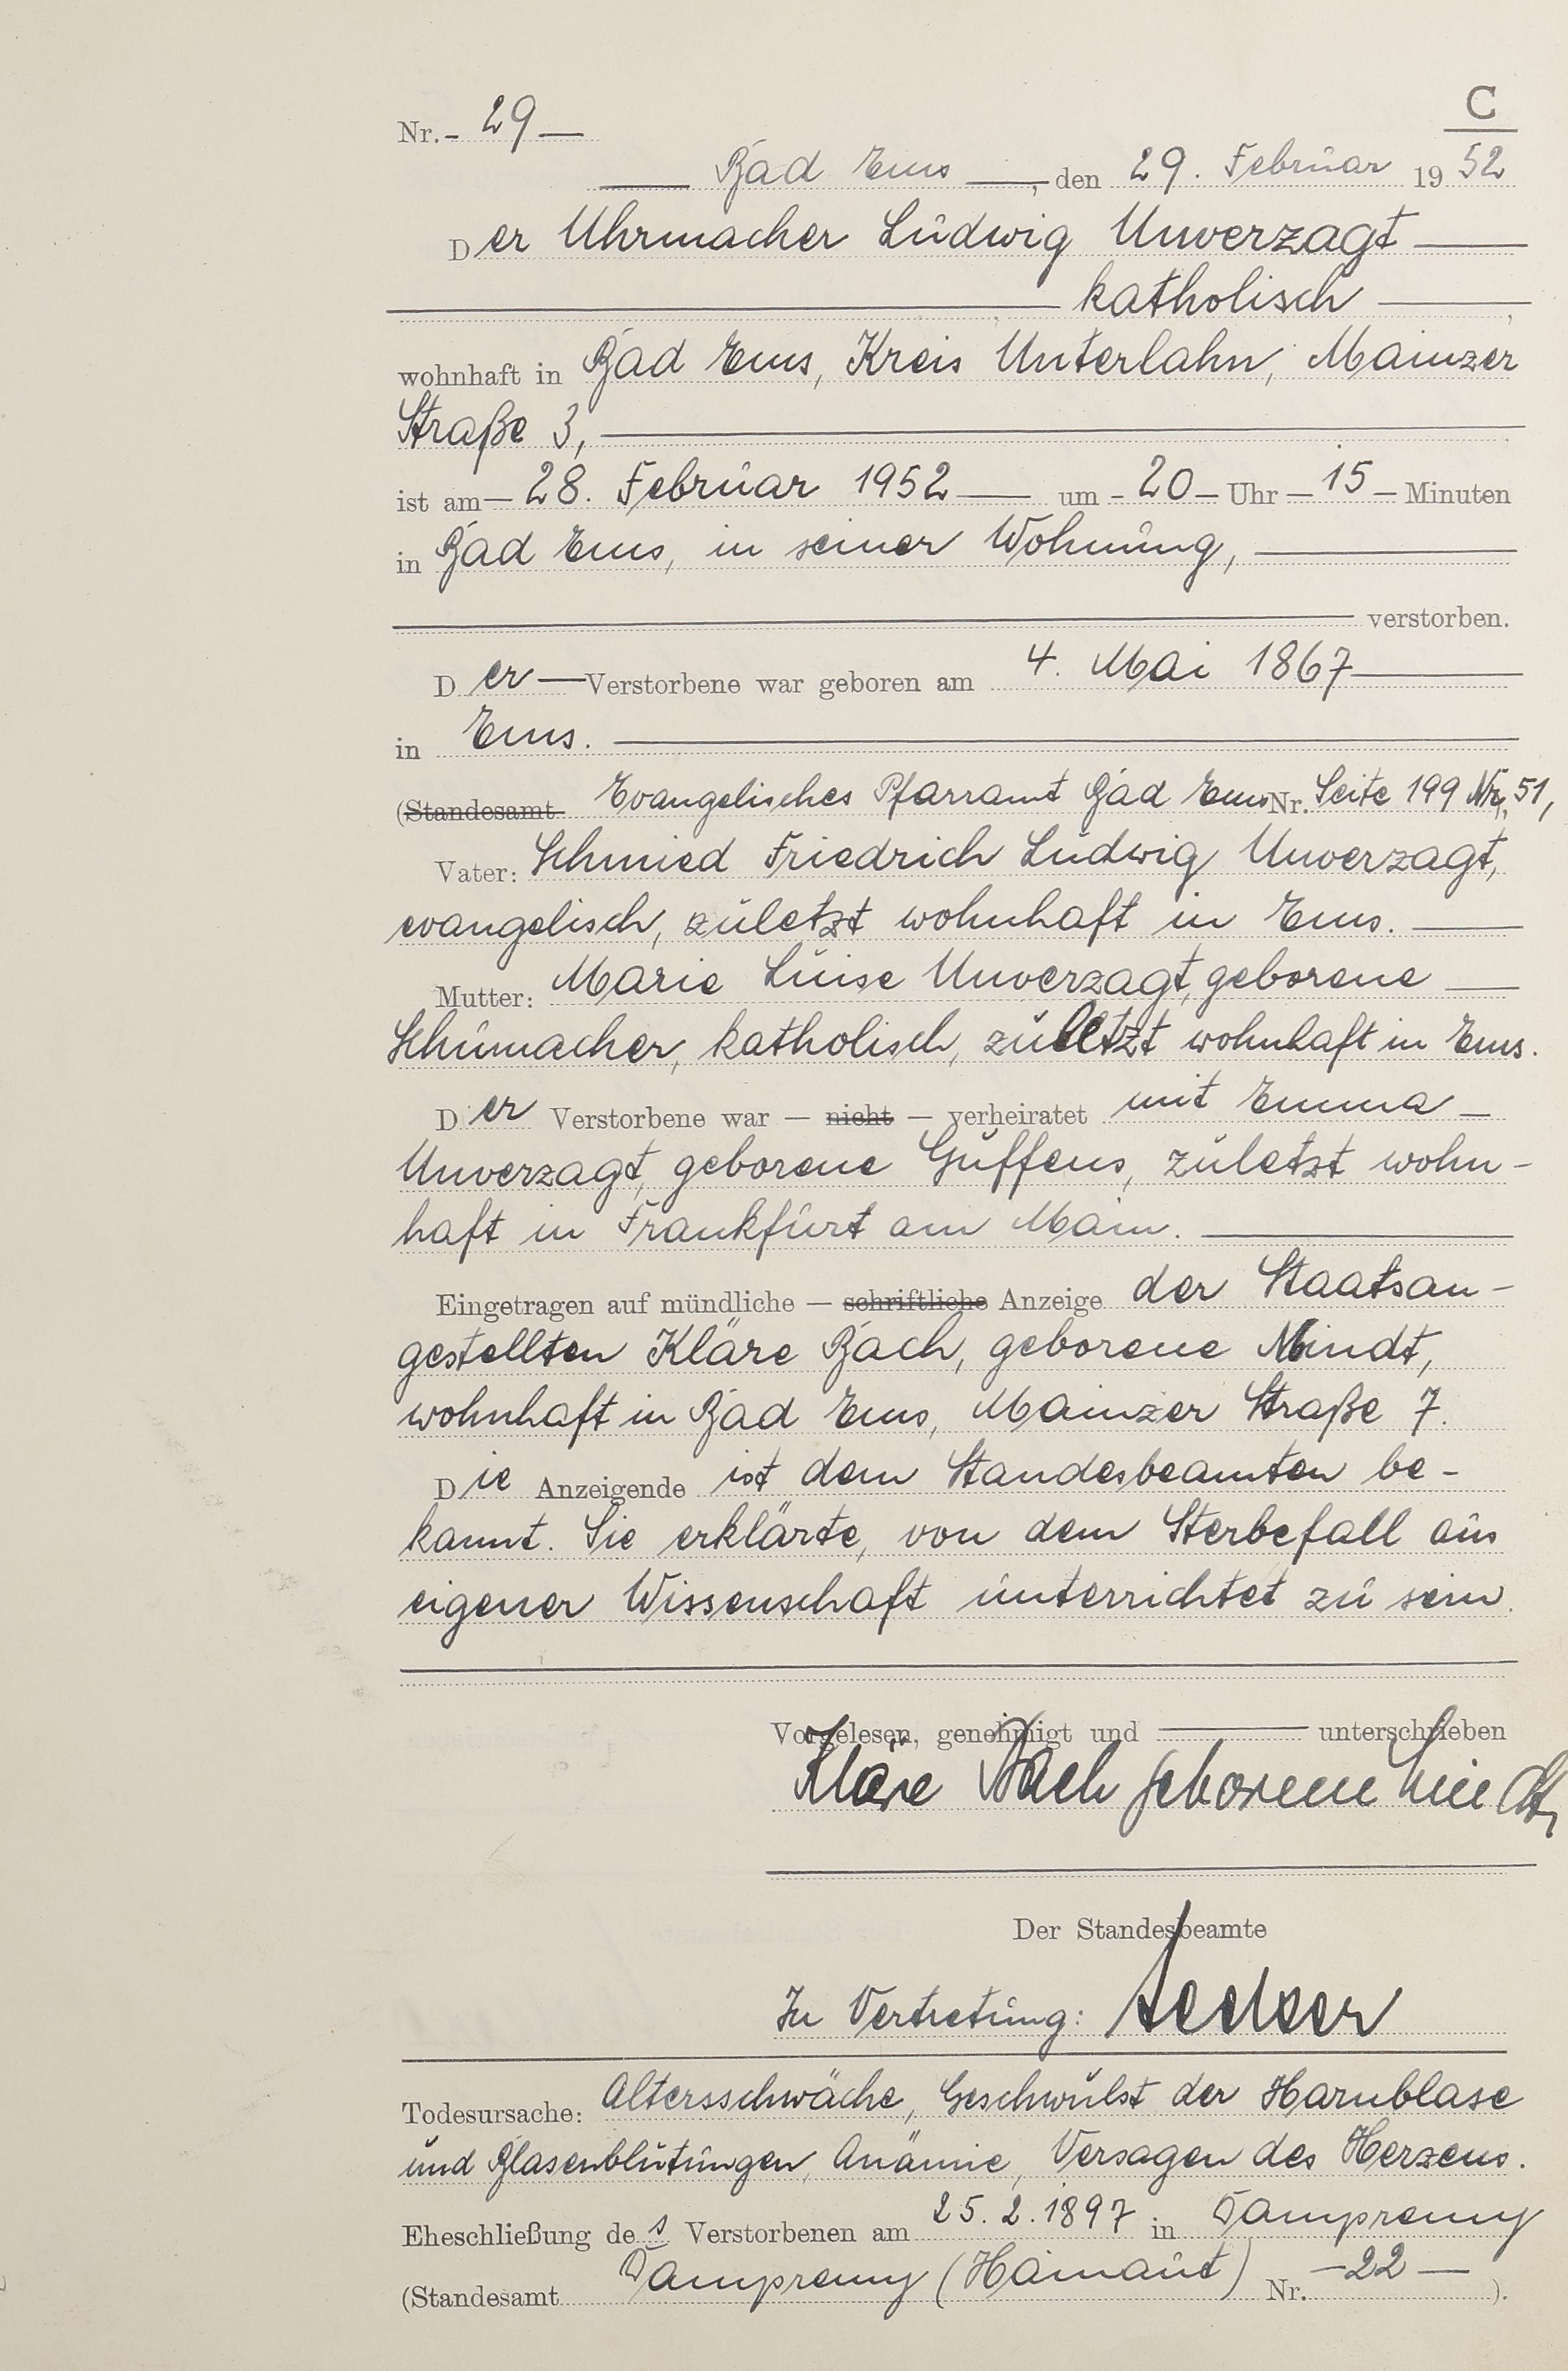 C
Nr. 29
Bad Ems, den 29. Februar 1952
Der Uhrmacher Ludwig Unverzagt
katholisch,
wohnhaft in Bad Ems, Kreis Unterlahn, Mainzer
Straße 3,
ist am 28. Februar 1952 um 20 Uhr 15 Minuten
in Bad Ems, in seiner Wohnung,
verstorben.
Der Verstorbene war geboren am 4. Mai 1867
in Ems.
(Standesamt Evangelisches Pfarramt Bad Ems Nr. Seite 199 Nr. 51,
Vater: Schmied Friedrich Ludwig Unverzagt,
evangelisch, zuletzt wohnhaft in Ems.
Mutter: Marie Luise Unverzagt, geborene
Schumacher, katholisch, zuletzt wohnhaft in Ems.
Der Verstorbene war — nicht — verheiratet mit Emma
Unverzagt, geborene Guffens, zuletzt wohn-
haft in Frankfurt am Main.
Eingetragen auf mündliche — schriftliche Anzeige der Staatsan-
gestellten Kläre Bach, geborene Mindt,
wohnhaft in Bad Ems, Mainzer Straße 7.
Die Anzeigende ist dem Standesbeamten be-
kannt. Sie erklärte, von dem Sterbefall aus
eigener Wissenschaft unterrichtet zu sein.
Vorgelesen, genehmigt und unterschrieben
Kläre Bach geborene Mindt,
Der Standesbeamte
In Vertretung:
Todesursache: Altersschwäche, Geschwulst der Harnblase
und Blasenblutungen, Anämie, Versagen des Herzens.
Eheschließung des Verstorbenen am 25.2.1897 in Dampremy
(Standesamt Dampremy (Hainaut) Nr. 22 ).